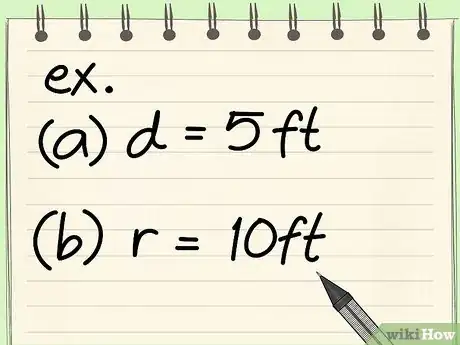 ex.
(a) d = 5 ft
(b) r = 10ft
wikiHow